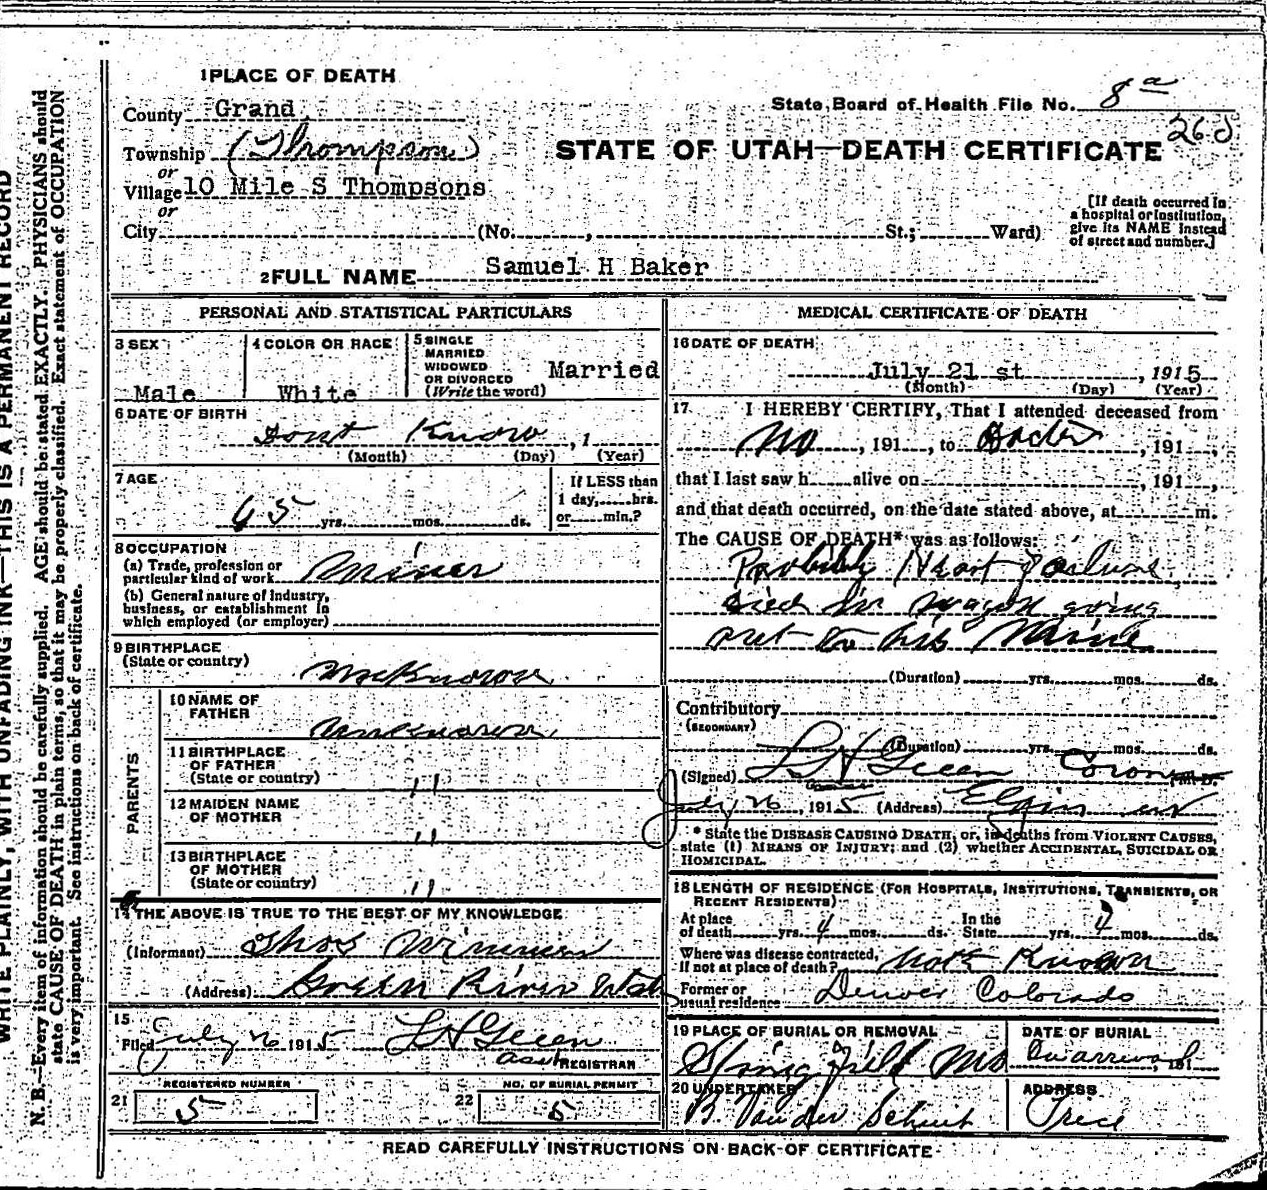 1 PLACE OF DEATH
County Grand
State Board of Health File No. 8 a
26 d
Township (Thompson)
or
STATE OF UTAH—DEATH CERTIFICATE
Village 10 Mile S Thompsons
or
City (No. , St.; Ward)
[If death occurred in
a hospital or institution,
give its NAME instead
of street and number.]
2 FULL NAME Samuel H Baker
PERSONAL AND STATISTICAL PARTICULARS
3 SEX
Male
4 COLOR OR RACE
White
5 SINGLE
MARRIED
WIDOWED
OR DIVORCED
(Write the word)
Married
6 DATE OF BIRTH
dont Know , 1
(Month) (Day) (Year)
7 AGE
65 yrs. mos. ds.
If LESS than
1 day, hrs.
or min.?
8 OCCUPATION
(a) Trade, profession or
particular kind of work Miner
(b) General nature of Industry,
business, or establishment in
which employed (or employer)
9 BIRTHPLACE
(State or country)
Unknown
PARENTS
10 NAME OF
FATHER
Unknown
11 BIRTHPLACE
OF FATHER
(State or country) "
12 MAIDEN NAME
OF MOTHER
"
13 BIRTHPLACE
OF MOTHER
(State or country) "
14 THE ABOVE IS TRUE TO THE BEST OF MY KNOWLEDGE
(Informant) Thos Wimmer
(Address) Green River Utah
15
Filed July 26 1915 L H Green
asst REGISTRAR
21 REGISTERED NUMBER
5
22 NO. OF BURIAL PERMIT
5
MEDICAL CERTIFICATE OF DEATH
16 DATE OF DEATH
July 21 st , 1915
(Month) (Day) (Year)
17 I HEREBY CERTIFY, That I attended deceased from
No , 191 , to Doctor , 191 ,
that I last saw h alive on , 191 ,
and that death occurred, on the date stated above, at m.
The CAUSE OF DEATH* was as follows:
Probibly Heart Failure
died in wagon going
out to his Mine
(Duration) yrs. mos. ds.
Contributory
(SECONDARY)
(Duration) yrs. mos. ds.
(Signed) L H Green Coroner M.D.
July 26, 1915 (Address) Elgin ut
* State the DISEASE CAUSING DEATH, or, in deaths from VIOLENT CAUSES,
state (1) MEANS OF INJURY; and (2) whether ACCIDENTAL, SUICIDAL OR
HOMICIDAL.
18 LENGTH OF RESIDENCE (FOR HOSPITALS, INSTITUTIONS, TRANSIENTS, OR
RECENT RESIDENTS)
At place
of death yrs. 4 mos. ds.
In the
State yrs. 4 mos. ds.
Where was disease contracted,
If not at place of death? Not Known
Former or
usual residence Denver Colorado
19 PLACE OF BURIAL OR REMOVAL
DATE OF BURIAL
, 191
20 UNDERTAKER
B. Van der Schuit
ADDRESS
READ CAREFULLY INSTRUCTIONS ON BACK OF CERTIFICATE
WRITE PLAINLY, WITH UNFADING INK—THIS IS A PERMANENT RECORD
N. B.—Every item of information should be carefully supplied. AGE should be stated EXACTLY. PHYSICIANS should
state CAUSE OF DEATH in plain terms, so that it may be properly classified. Exact statement of OCCUPATION
is very important. See instructions on back of certificate.